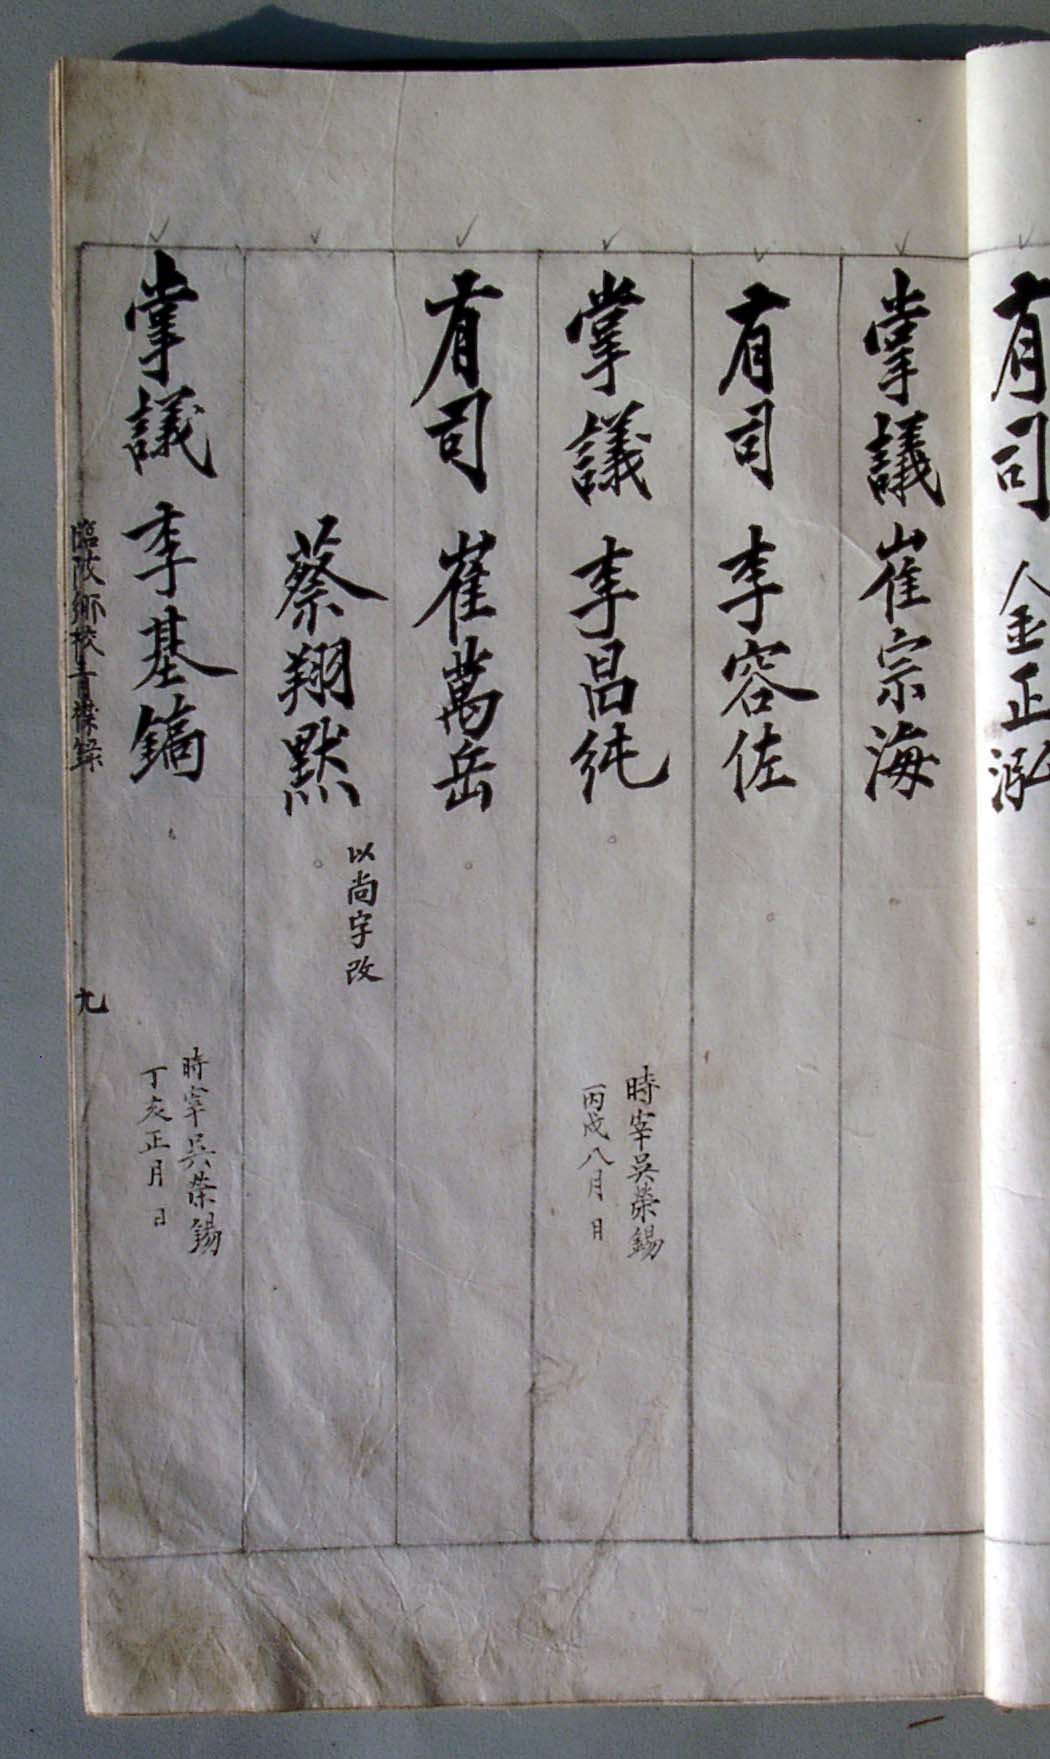 有司 金正泓
掌議 崔宗海
有司 李容佐
掌議 李昌純
時宰吳榮錫
丙戌八月 日
有司 崔萬岳
蔡翔默
以尚字改
掌議 李基鎬
時宰吳榮錫
丁亥正月 日
臨陂鄉校青襟錄
九